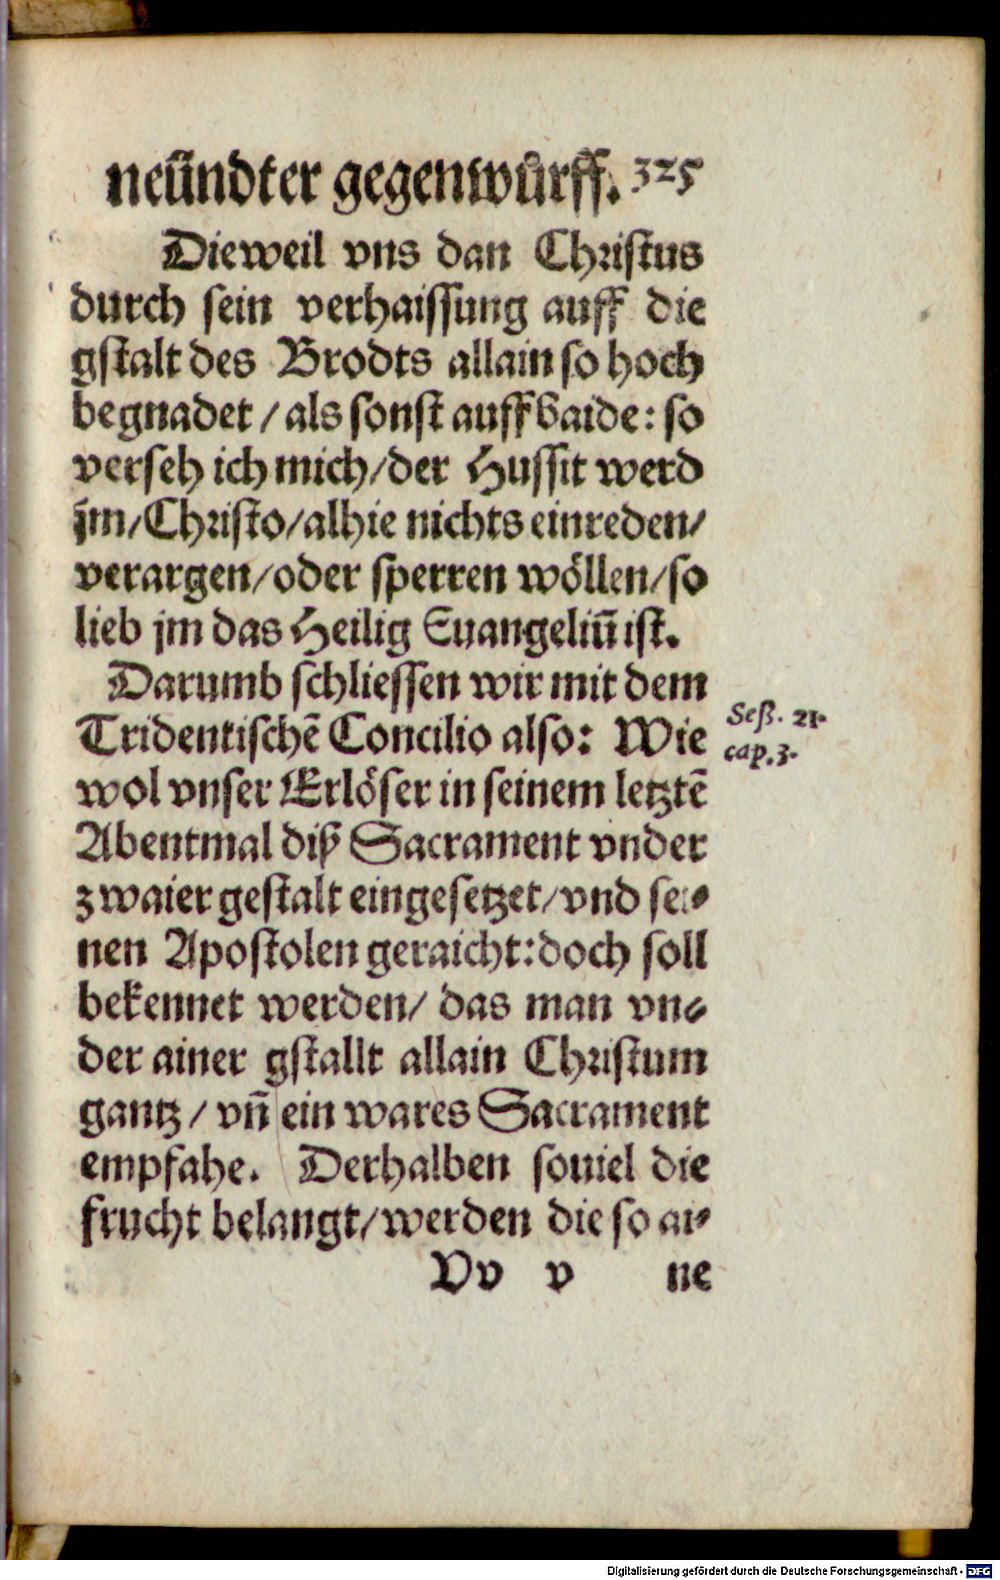 neündter gegenwůrff. 325
Dieweil vns dan Christus
durch sein verhaissung auff die
gstalt des Brodts allain so hoch
begnadet / als sonst auff baide: so
verseh ich mich / der Hussit werd
jm / Christo / alhie nichts einreden /
verargen / oder sperren wöllen / so
lieb jm das Heilig Euangeliū ist.
Darumb schliessen wir mit dem
Tridentischē Concilio also: Wie
wol vnser Erlöser in seinem letztē
Abentmal diß Sacrament vnder
zwaier gestalt eingesetzet / vnd sei-
nen Apostolen geraicht: doch soll
bekennet werden / das man vn-
der ainer gstallt allain Christum
gantz / vñ ein wares Sacrament
empfahe. Derhalben souiel die
frucht belangt / werden die so ai-
Vv v ne
Seß. 21.
cap. 3.
Digitalisierung gefördert durch die Deutsche Forschungsgemeinschaft - DFG